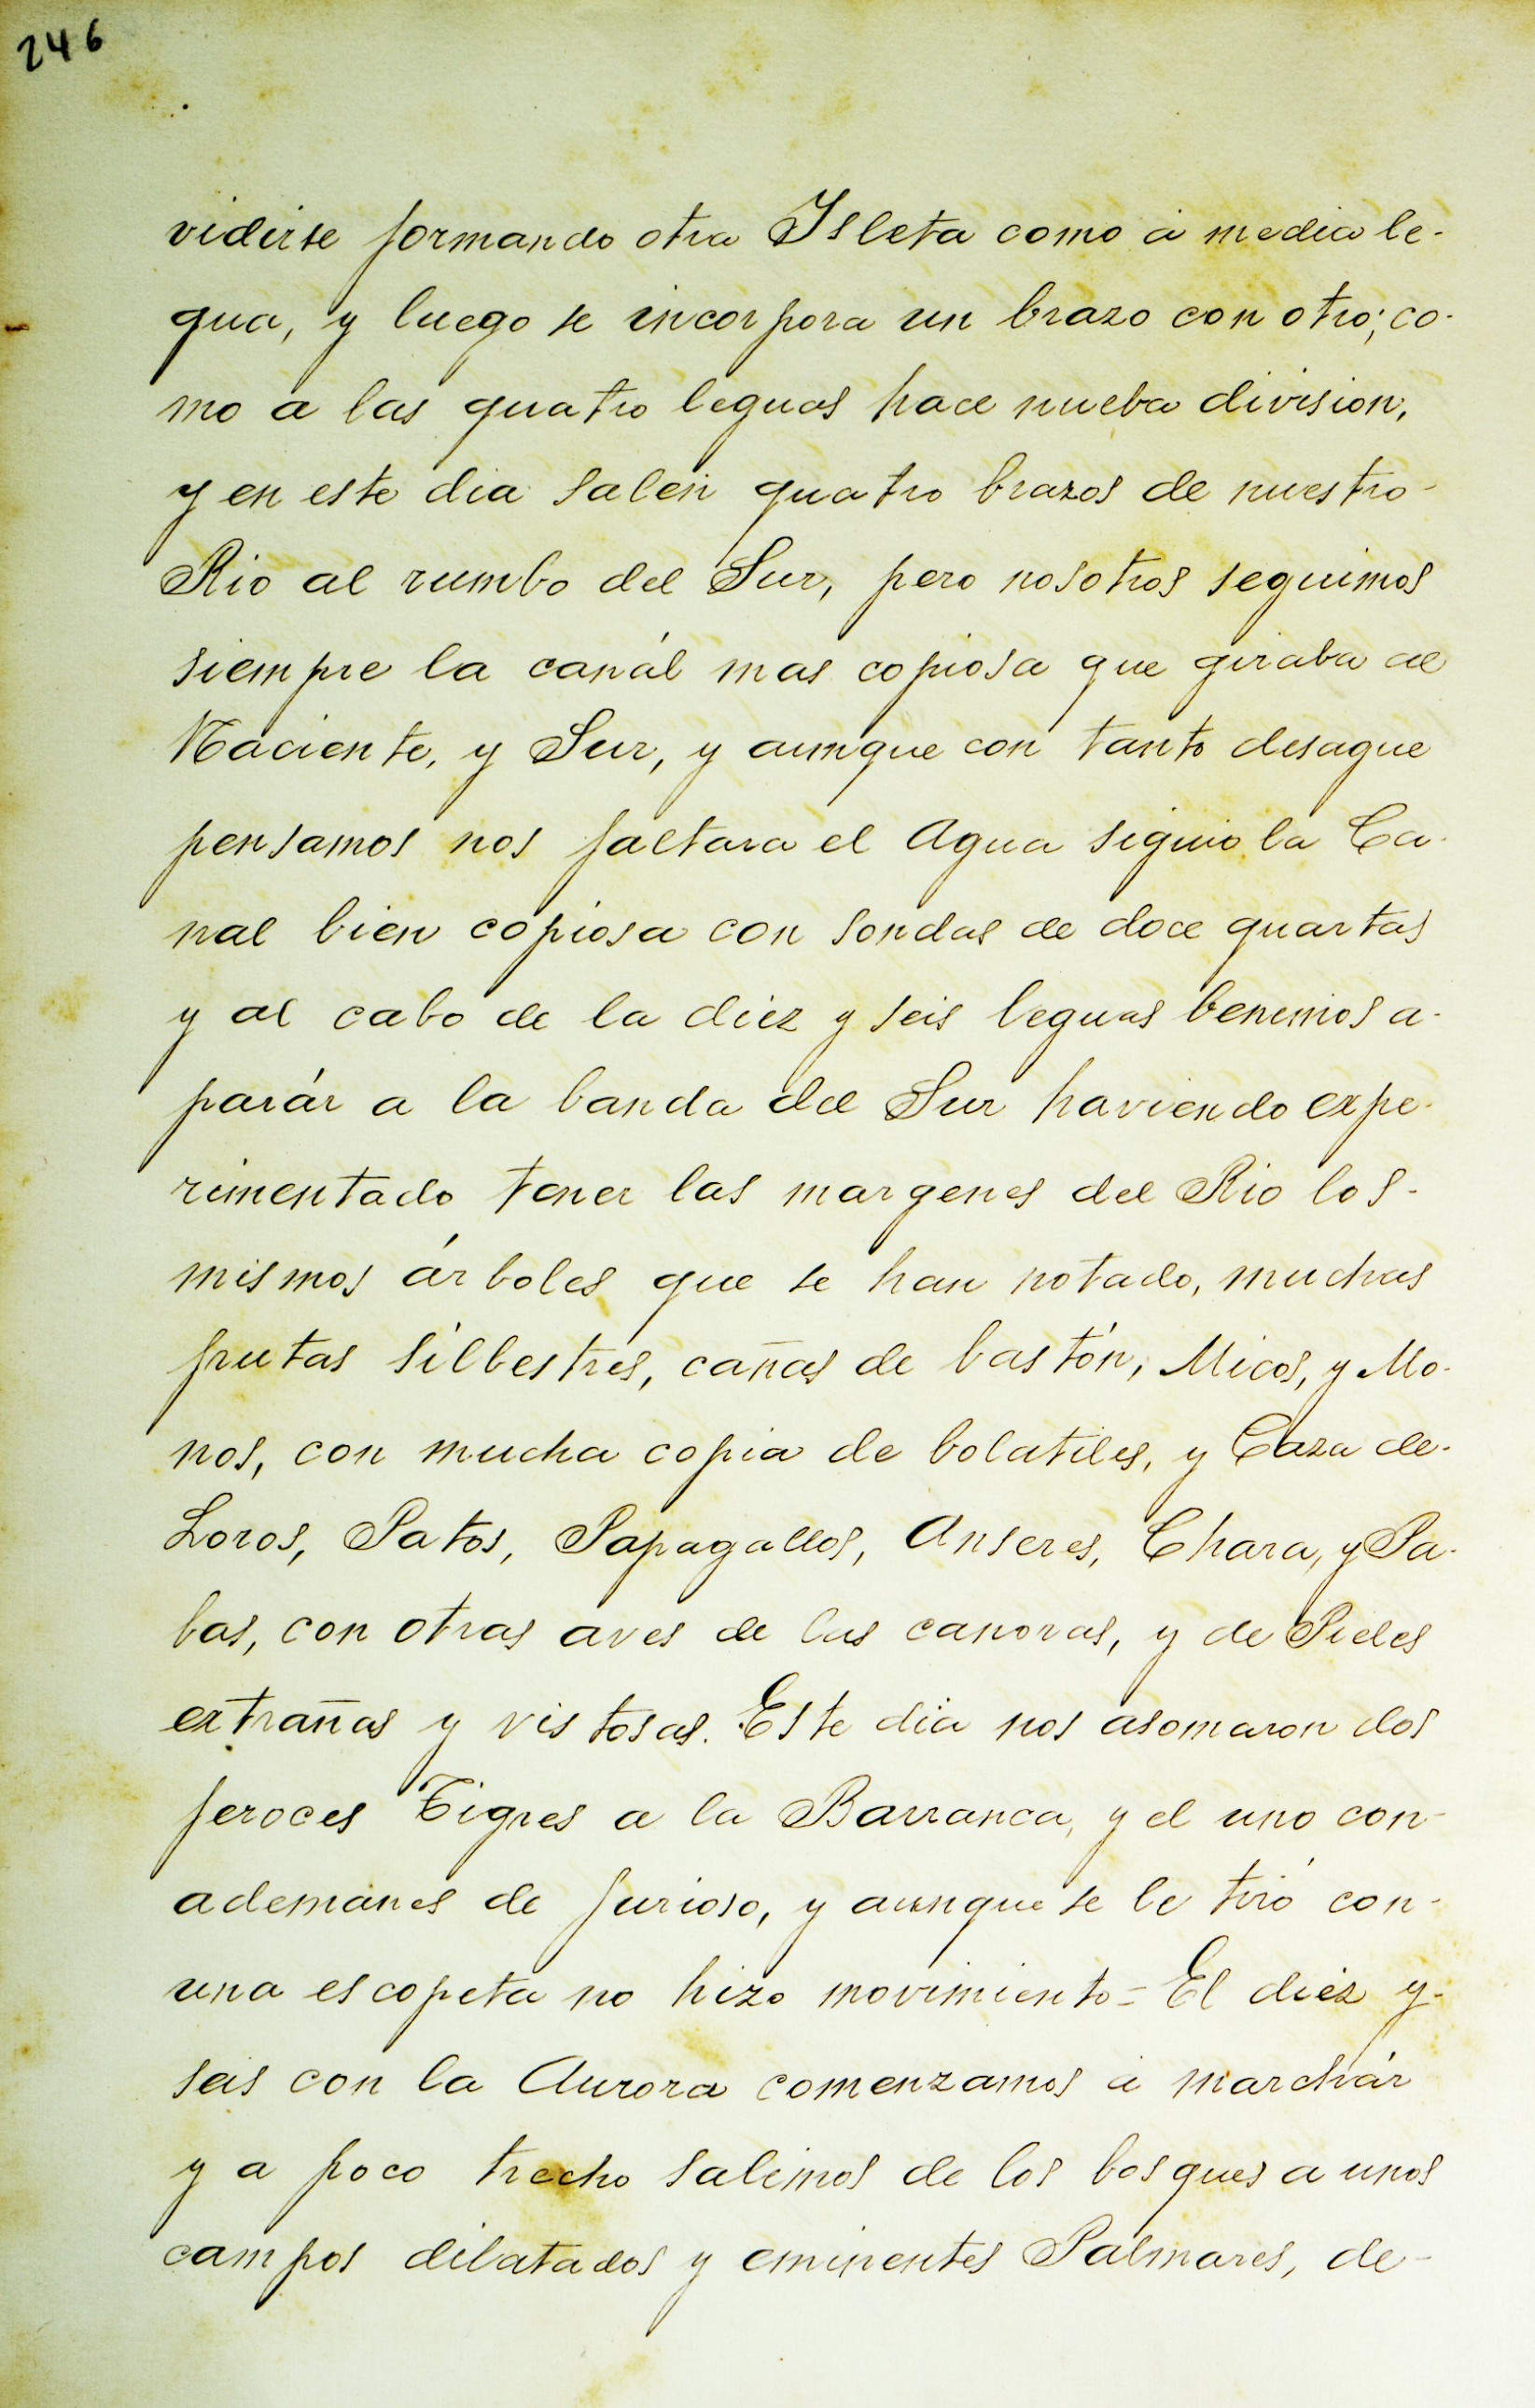 246
vidirse formando otra Isleta como á media le-
gua, y luego se incorpora un brazo con otro; co-
mo a las quatro leguas hace nueba division,
y en este dia salen quatro brazos de nuestro-
Rio al rumbo del Sur, pero nosotros seguimos
siempre la canál mas copiosa que giraba al
Naciente, y Sur, y aunque con tanto desague
pensamos nos faltara el Agua siguio la Ca-
nal bien copiosa con sondas de doce quartas
y al cabo de la diez y seis leguas benemos a-
parár a la banda del Sur haviendo expe-
rimentado tener las margenes del Rio los-
mismos árboles que se han notado, muchas
frutas silbestres, cañas de bastón, Micos, y Mo-
nos, con mucha copia de bolatiles, y Caza de-
Loros, Patos, Papagallos, Anseres, Chara, y Pa-
bas, con otras aves de las canoras, y de Pieles
extrañas y vistosas. Este dia nos asomaron dos
feroces Tigres a la Barranca, y el uno con-
ademanes de furioso, y aunque se le tiró con-
una escopeta no hizo movimiento = El diez y-
seis con la Aurora comenzamos á marchár
y a poco trecho salimos de los bosques a unos
campos dilatados y eminentes Palmares, de-